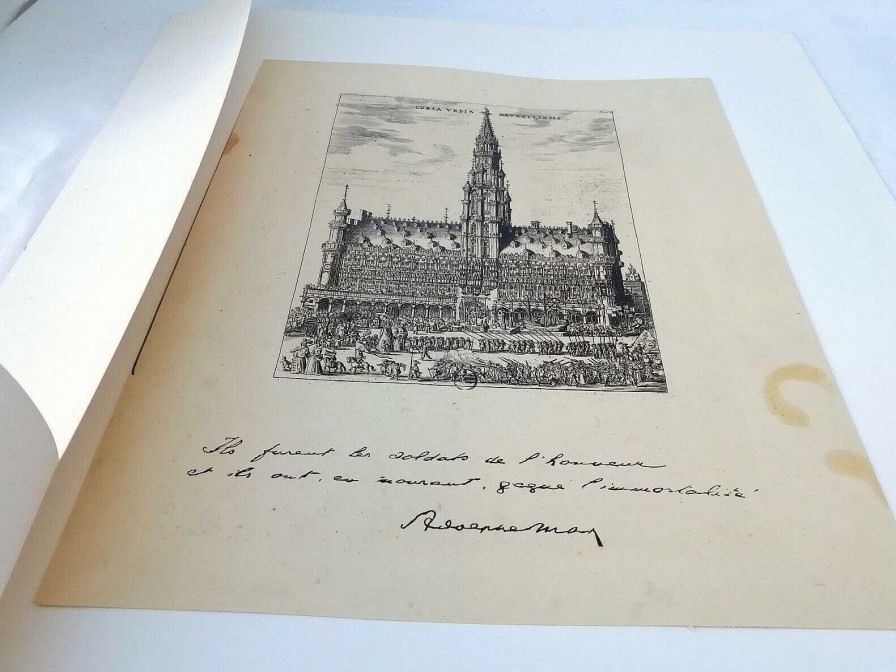 CVRIA VRBIS BRVXELLENSIS
Ils furent les soldats de l'honneur
et ils ont, en mourant, gagné l'immortalité
Adolphe Max